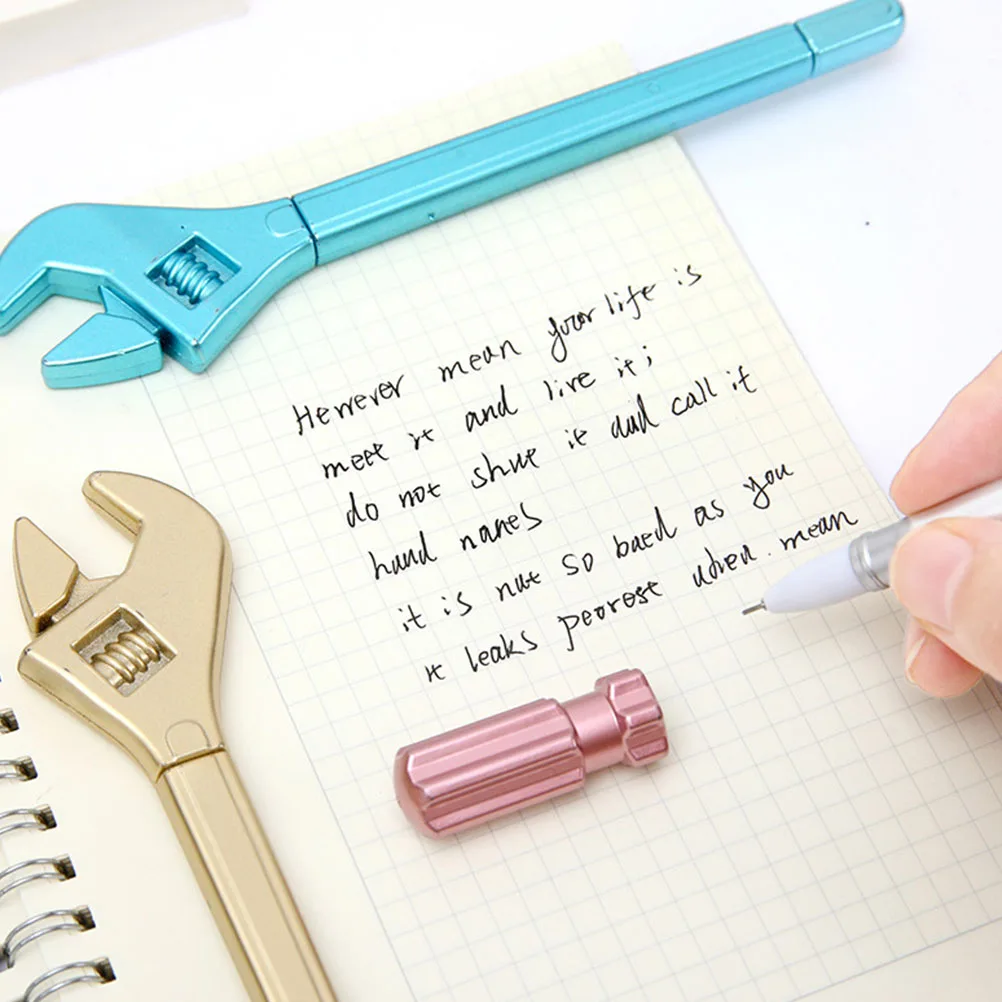 Hewever mean your life is
meet it and live it;
do not shue it and call it
hand nanes
it is not so baed as you
it leaks peorest when mean